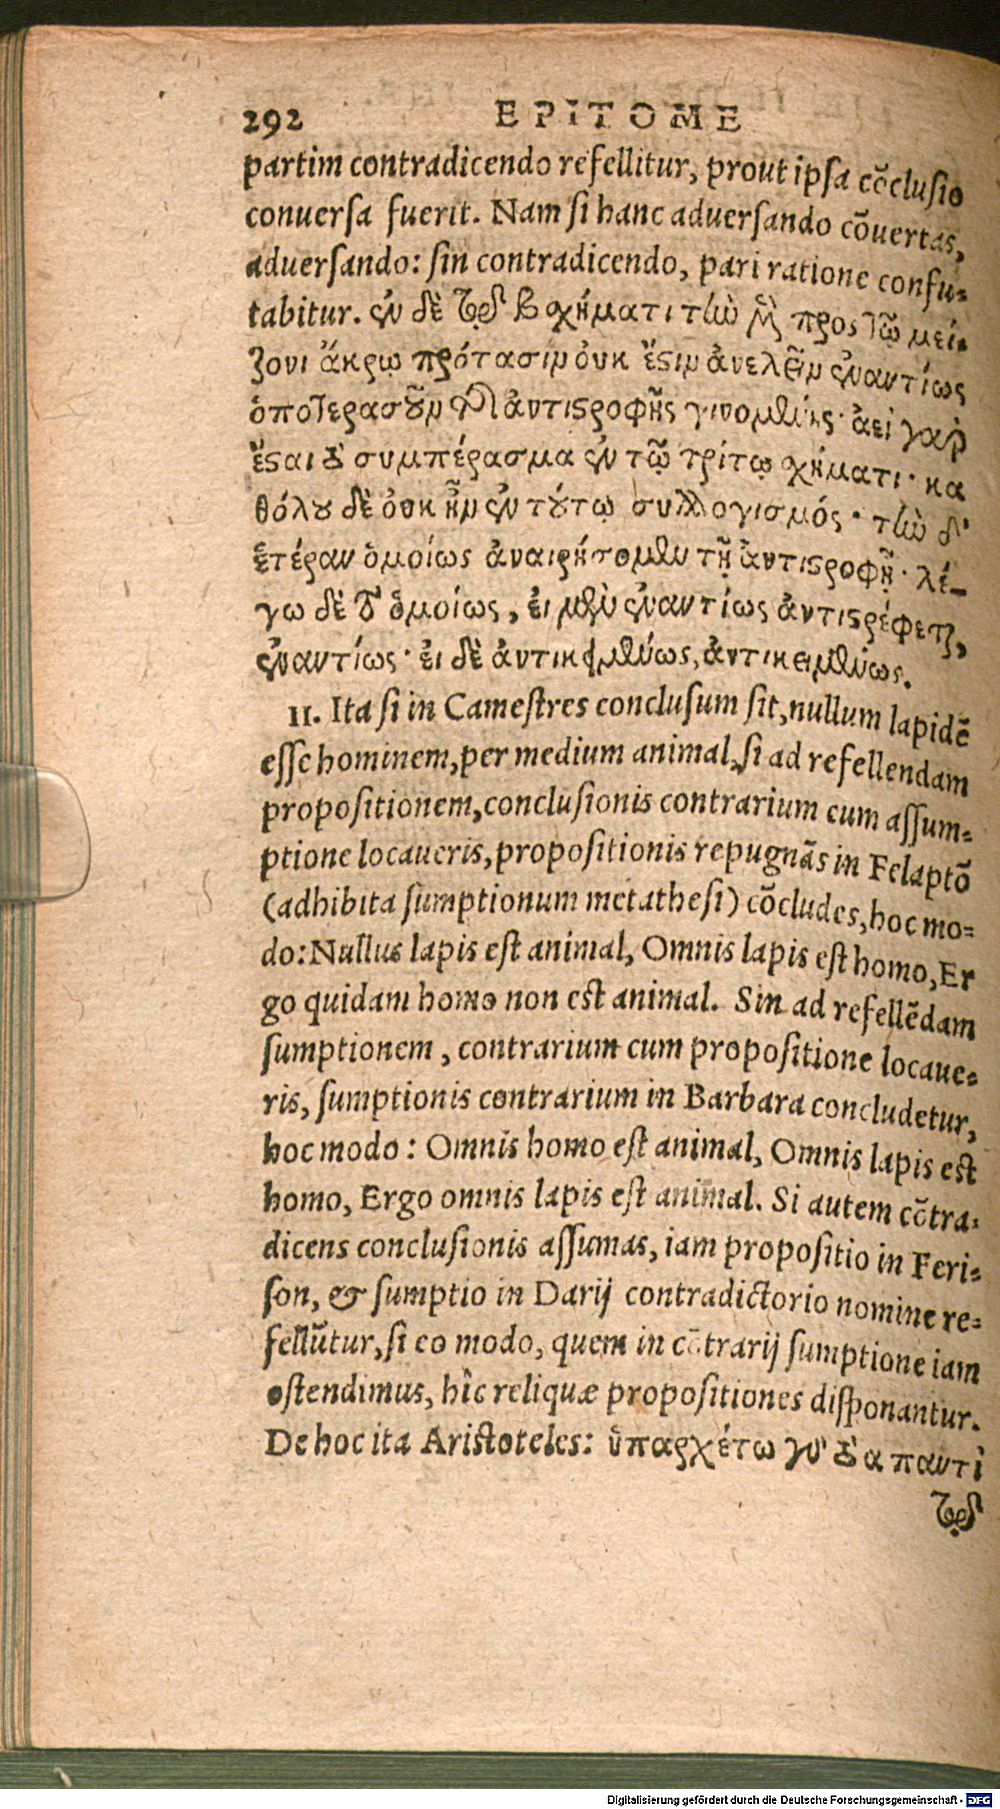 292 EPITOME
partim contradicendo refellitur, prout ipsa cõclusio
conuersa fuerit. Nam si hanc aduersando cõuertas,
aduersando: sin contradicendo, pari ratione confu-
tabitur. ἐν δὲ τῷ β σχήματι τὴν μὲν πρὸς τῷ μεί-
ζονι ἄκρῳ πρότασιν οὐκ ἔστιν ἀνελεῖν ἐναντίως
ὁποτερασοῦν τῆς ἀντιστροφῆς γινομένης· ἀεὶ γὰρ
ἔσται τὸ συμπέρασμα ἐν τῷ τρίτῳ σχήματι· κα
θόλου δὲ οὐκ ἦν ἐν τούτῳ συλλογισμός· τὴν δ'
ἑτέραν ὁμοίως ἀναιρήσομεν τῇ ἀντιστροφῇ· λέ-
γω δὲ τὸ ὁμοίως, εἰ μὲν ἐναντίως ἀντιστρέφεται,
ἐναντίως· εἰ δὲ ἀντικειμένως, ἀντικειμένως.
11. Ita si in Camestres conclusum sit, nullum lapidẽ
esse hominem, per medium animal, si ad refellendam
propositionem, conclusionis contrarium cum assum-
ptione locaueris, propositionis repugnãs in Felaptõ
(adhibita sumptionum metathesi) cõcludes, hoc mo-
do: Nullus lapis est animal, Omnis lapis est homo, Er
go quidam homo non est animal. Sin ad refellẽdam
sumptionem, contrarium cum propositione locaue-
ris, sumptionis contrarium in Barbara concludetur,
hoc modo: Omnis homo est animal, Omnis lapis est
homo, Ergo omnis lapis est animal. Si autem cõtra-
dicens conclusionis assumas, iam propositio in Feri-
son, & sumptio in Darij contradictorio nomine re-
fellũtur, si eo modo, quem in cõtrarij sumptione iam
ostendimus, hîc reliquæ propositiones disponantur.
De hoc ita Aristoteles: ὑπαρχέτω γὰρ τὸ α παντὶ
τῷ